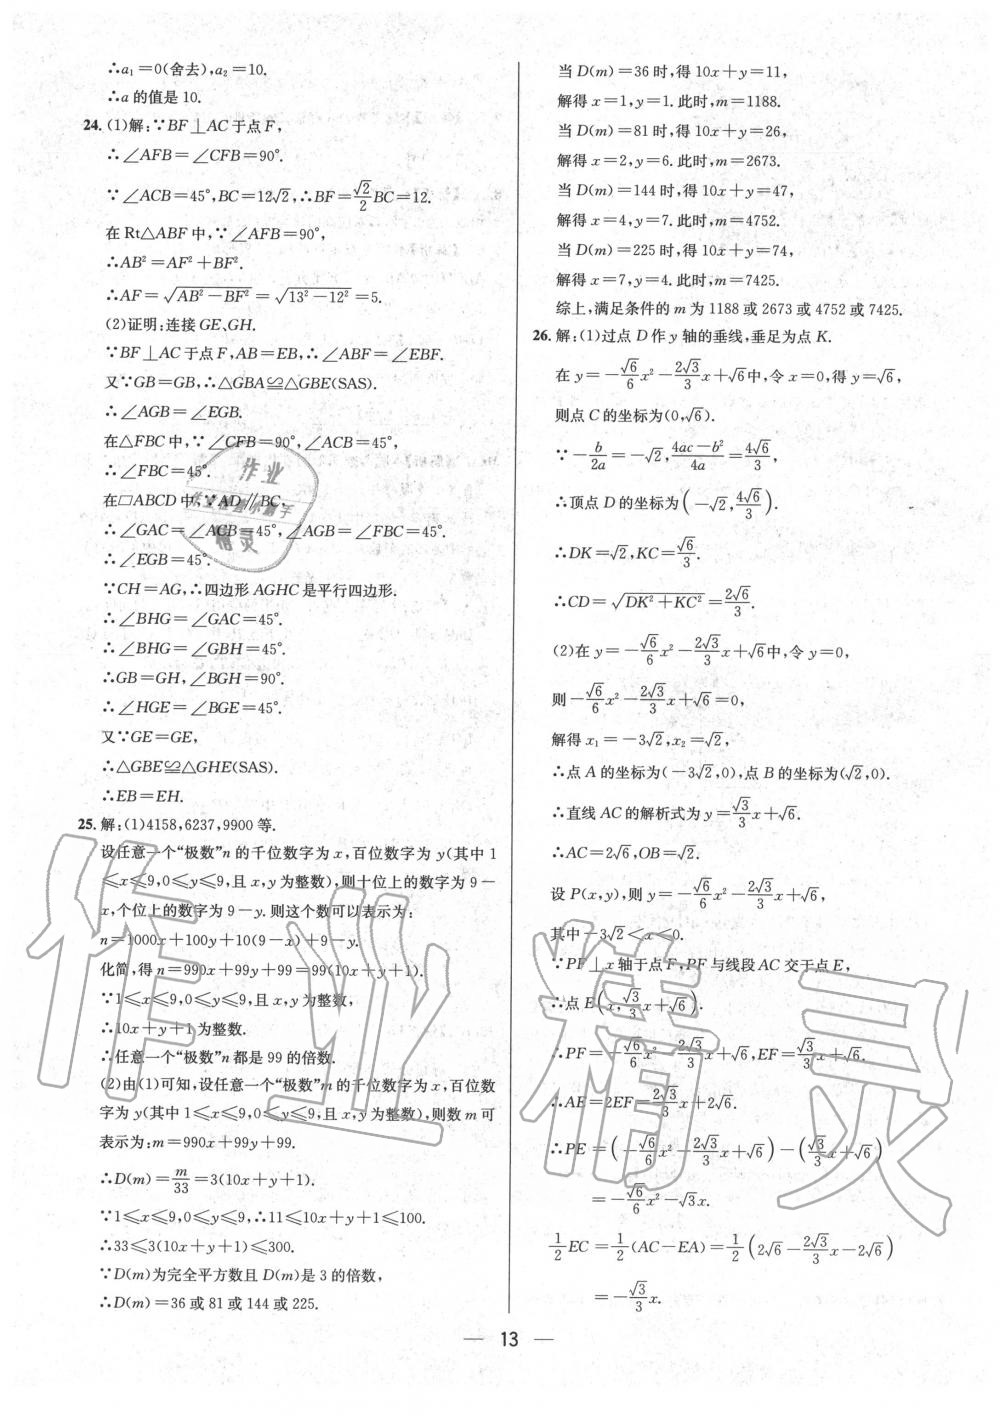 ∴a₁=0(舍去),a₂=10.
∴a 的值是 10.
24. (1)解:∵BF⊥AC 于点 F,
∴∠AFB=∠CFB=90°.
∵∠ACB=45°,BC=12√2,∴BF=√2/2 BC=12.
在 Rt△ABF 中,∵∠AFB=90°,
∴AB²=AF²+BF².
∴AF=√(AB²-BF²)=√(13²-12²)=5.
(2)证明:连接 GE、GH.
∵BF⊥AC 于点 F,AB=EB,∴∠ABF=∠EBF.
又∵GB=GB,∴△GBA≌△GBE(SAS).
∴∠AGB=∠EGB.
在△FBC 中,∵∠CFB=90°,∠ACB=45°,
∴∠FBC=45°.
在□ABCD 中,∵AD∥BC,
∴∠GAC=∠ACB=45°,∠AGB=∠FBC=45°.
∴∠EGB=45°.
∵CH=AG,∴四边形 AGHC 是平行四边形.
∴∠BHG=∠GAC=45°.
∴∠BHG=∠GBH=45°.
∴GB=GH,∠BGH=90°.
∴∠HGE=∠BGE=45°.
又∵GE=GE,
∴△GBE≌△GHE(SAS).
∴EB=EH.
25. 解:(1)4158,6237,9900 等.
设任意一个“极数”n 的千位数字为 x,百位数字为 y(其中 1
≤x≤9,0≤y≤9,且 x,y 为整数),则十位上的数字为 9-
x,个位上的数字为 9-y.则这个数可以表示为:
n=1000x+100y+10(9-x)+9-y.
化简,得 n=990x+99y+99=99(10x+y+1).
∵1≤x≤9,0≤y≤9,且 x,y 为整数,
∴10x+y+1 为整数.
∴任意一个“极数”n 都是 99 的倍数.
(2)由(1)可知,设任意一个“极数”m 的千位数字为 x,百位数
字为 y(其中 1≤x≤9,0≤y≤9,且 x,y 为整数),则数 m 可
表示为:m=990x+99y+99.
∴D(m)=m/33=3(10x+y+1).
∵1≤x≤9,0≤y≤9,∴11≤10x+y+1≤100.
∴33≤3(10x+y+1)≤300.
∵D(m)为完全平方数且 D(m)是 3 的倍数,
∴D(m)=36 或 81 或 144 或 225.
当 D(m)=36 时,得 10x+y=11,
解得 x=1,y=1.此时,m=1188.
当 D(m)=81 时,得 10x+y=26,
解得 x=2,y=6.此时,m=2673.
当 D(m)=144 时,得 10x+y=47,
解得 x=4,y=7.此时,m=4752.
当 D(m)=225 时,得 10x+y=74,
解得 x=7,y=4.此时,m=7425.
综上,满足条件的 m 为 1188 或 2673 或 4752 或 7425.
26. 解:(1)过点 D 作 y 轴的垂线,垂足为点 K.
在 y=-√6/6 x²-2√3/3 x+√6中,令 x=0,得 y=√6,
则点 C 的坐标为(0,√6).
∵-b/2a=-√2,(4ac-b²)/4a=4√6/3,
∴顶点 D 的坐标为(-√2,4√6/3).
∴DK=√2,KC=√6/3.
∴CD=√(DK²+KC²)=2√6/3.
(2)在 y=-√6/6 x²-2√3/3 x+√6中,令 y=0,
则-√6/6 x²-2√3/3 x+√6=0,
解得 x₁=-3√2,x₂=√2,
∴点 A 的坐标为(-3√2,0),点 B 的坐标为(√2,0).
∴直线 AC 的解析式为 y=√3/3 x+√6.
∴AC=2√6,OB=√2.
设 P(x,y),则 y=-√6/6 x²-2√3/3 x+√6.
其中-3√2<x≤0.
∵PF⊥x 轴于点 F,PF 与线段 AC 交于点 E,
∴点 E(x,√3/3 x+√6).
∴PF=-√6/6 x²-2√3/3 x+√6,EF=√3/3 x+√6.
∴AE=2EF=2√3/3 x+2√6.
∴PE=(-√6/6 x²-2√3/3 x+√6)-(√3/3 x+√6)
=-√6/6 x²-√3x.
1/2 EC=1/2(AC-EA)=1/2(2√6-2√3/3 x-2√6)
=-√3/3 x.
— 13 —
作业精灵
作业
精灵